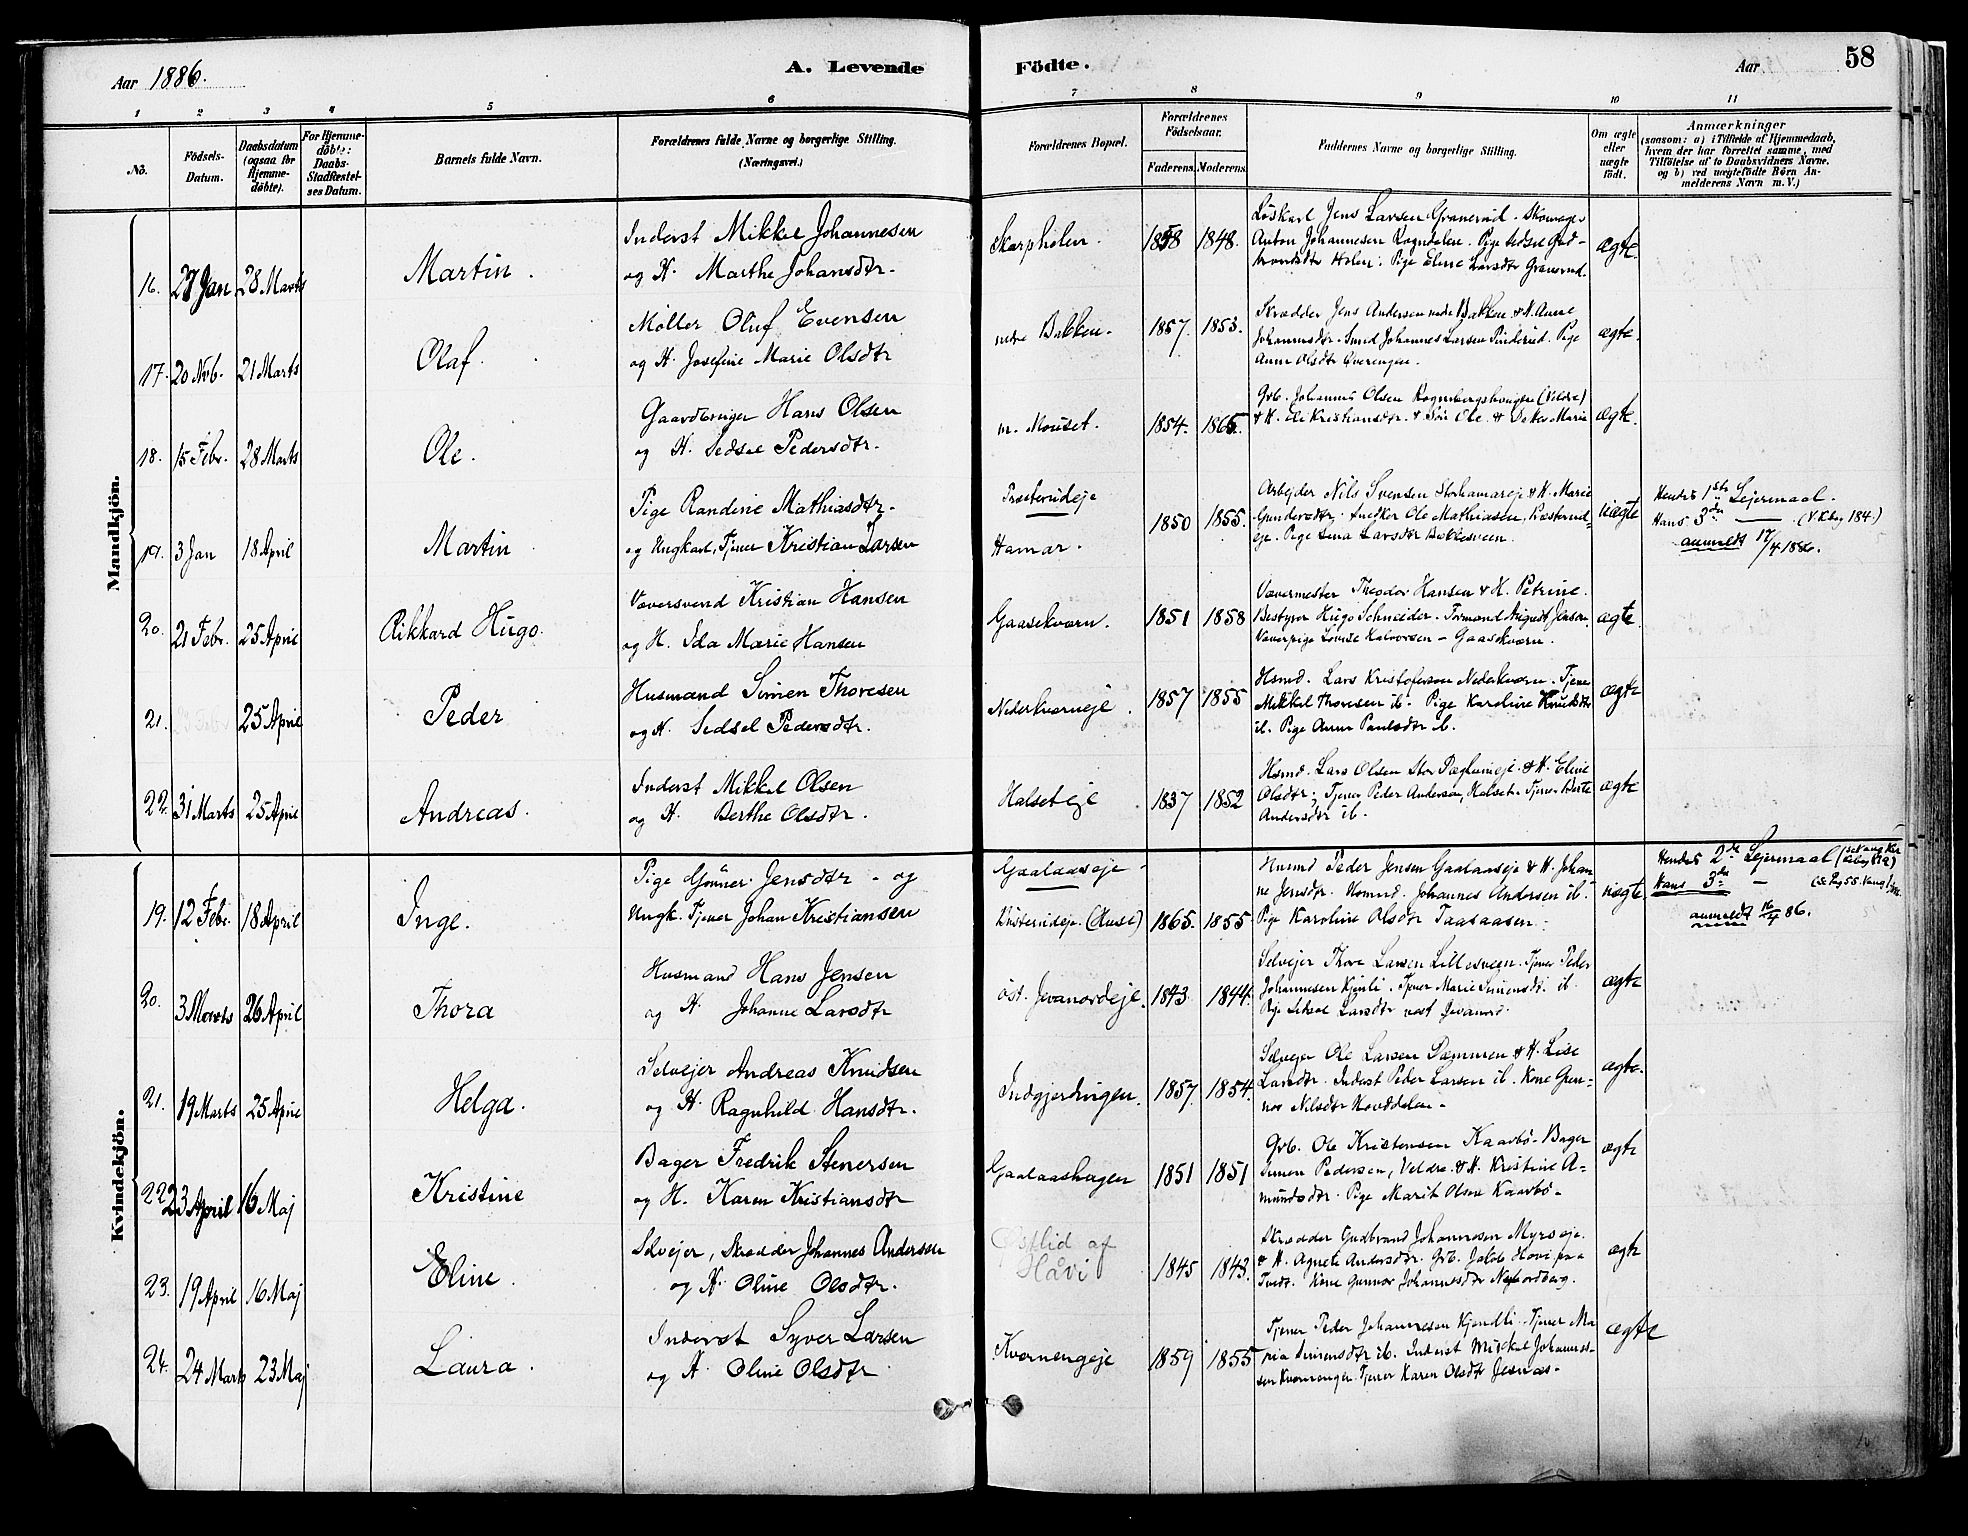 Aar 1886.
A. Levende Födte.
Aar
58
1 2 3 4 5 6 7 8 9 10 11
No.
Födsels-Datum.
Daabsdatum (ogsaa for Hjemme-döbte).
For Hjemme-döbte: Daabs-Stadfæstel-ses Datum.
Barnets fulde Navn.
Forældrenes fulde Navne og borgerlige Stilling. (Næringsvei.)
Forældrenes Bopæl.
Forældrenes Födselsaar.
Faderens. Moderens.
Faddernes Navne og borgerlige Stilling.
Om ægte eller uægte födt.
Anmærkninger
(saasom: a) i Tilfælde af Hjemmedaab, hvem der har forrettet samme, med Tilföielse af to Daabsvidners Navne. og b) ved uægtefödte Börn An-melderens Navn m. V.)
Mandkjön.
16. 27 Jan 28 Marts Martin.
Inderst Mikkel Johannesen
og H. Marthe Johansdtr.
Skarpholen. 1858 1848.
Löskarl Jens Larsen Granerud. Skomager
Anton Johannesen Rogndalen. Pige
Holen. Pige Eline Larsdtr Granerud.
ægte.
17. 20 Nvb. 21 Marts Olaf.
Møller Oluf Evensen
og H. Josefine Marie Olsdtr
nedre Bakken. 1857. 1853.
Skrædder Jens Andersen nedre Bakken & H. Anne
Johannesdtr. Smed Johannes Larsen Pinderud. Pige
Anne Olsdtr Øverengen.
ægte.
18. 15 Febr. 28 Marts Ole.
Gaardbruger Hans Olsen
og H. Sedsel Pedersdtr.
m. Mouset. 1854. 1865.
Grb. Johannes Olsen (Veldre)
& H. Kristiansdtr. & Sön Ole & Datter Marie
ægte.
19. 3 Jan 18 April Martin
Pige Randine Mathiasdtr.
og Ungkarl, Tjener Kristian Larsen
Præsterudeje
Hamar. 1850 1855.
Arbejder Nils Svensen Storhamareje & H. Marie
Gundersdtr. Snedker Ole Mathiasen, Præsterud-
eje. Pige Lina Larsdtr Bakkesveen.
uægte
Hendes 1ste Lejermaal.
Hans 3die —
anmeldt 17/4 1886.
20. 21 Febr. 25 April Rikkard Hugo.
Væversvend Kristian Hansen
og H. Ida Marie Hansen
Gaasekværn. 1851 1858
Vævermester Theodor Hansen & H. Petrine.
Bestyrer Hugo Schneider. Formand August Jensen.
Væverpige Lovise Halvorsen – Gaasekværn.
ægte.
21. 25 April Peder
Husmand Simen Thoresen
og H. Sedsel Pedersdtr.
Nederkværneje. 1857 1855
Hsmd. Lars Kristofersen Nederkværn. Tjener
Mikkel Thoresen ib. Pige Karoline Knudsdtr
ib. Pige Anne Paulsdtr ib.
ægte
22. 31 Marts 25 April Andreas.
Inderst Mikkel Olsen
og H. Berthe Olsdtr.
Halseteje 1837 1852
Hsmd. Lars Olsen Stor & H. Eline
Olsdtr. Tjener Peder Andersen, Halset. Tjener Birte
Andersdtr ib.
ægte
Kvindekjön.
19. 12 Febr. 18 April Inge.
Pige Gunner Jensdtr – og
Ungk. Tjener Johan Kristiansen
Gaalaaseje
1865. 1855
Husmd Peder Jensen Gaalaaseje & H. Johan-
ne Jensdtr. Husmd. Johannes Andersen ib.
Pige Karoline Olsdtr Taasaasen.
uægte.
Hendes 2det Lejermaal
Hans 3die —
anmeldt 16/4 86.
20. 3 Marts 26 April Thora
Husmand Hans Jensen
og H. Johanne Larsdtr
öst. Jevanordeje. 1843 1844.
Selvejer Thore Larsen Lillesveen. Tjener Peder
Johannesen Kjenli. Tjener Marie Simensdt. ib.
Pige Larsdtr vest Jevanord.
ægte
21. 19 Marts 25 April Helga.
Selvejer Andreas Knudsen
og H. Ragnhild Hansdtr.
Indgjerdingen. 1857. 1854.
Selvejer Ole Larsen Dæmmen & H. Lise
Larsdtr. Inderst Peder Larsen ib. Kone Gun-
nor Nilsdtr Hovddalen.
ægte.
22. 23 April 16 Maj Kristine
Bager Fredrik Stenersen
og H. Karen Kristiansdtr
Gaalaashagen 1851 1851
Grb. Ole Kristensen Kaarbö. Bager
Simen Pedersen, Veldre. & H. Kristine A-
mundsdtr. Pige Marit Olsen Kaarbö.
ægte
23. 19 April 16 Maj Eline.
Selvejer, Skrædder Johannes Andersen
og H. Oline Olsdtr.
Østlid af
Håvi 1845 1843.
Skrædder Gudbrand Johannesen Myrseje.
& H. Agnete Andersdtr. Grb. Jakob Hovi paa
Kone Gunnor Johannesdtr Nordberg.
ægte
24. 24 Marts 23 Maj Laura.
Inderst Syver Larsen
og H. Oline Olsdtr
Kværnengeje 1859 1855
Tjener Peder Johannesen Kjendli. Tjener Ma-
ria Simensdtr ib. Inderst Mikkel Johannes-
sen Kværnengen. Tjener Karen Olsdtr Jesnæs.
ægte